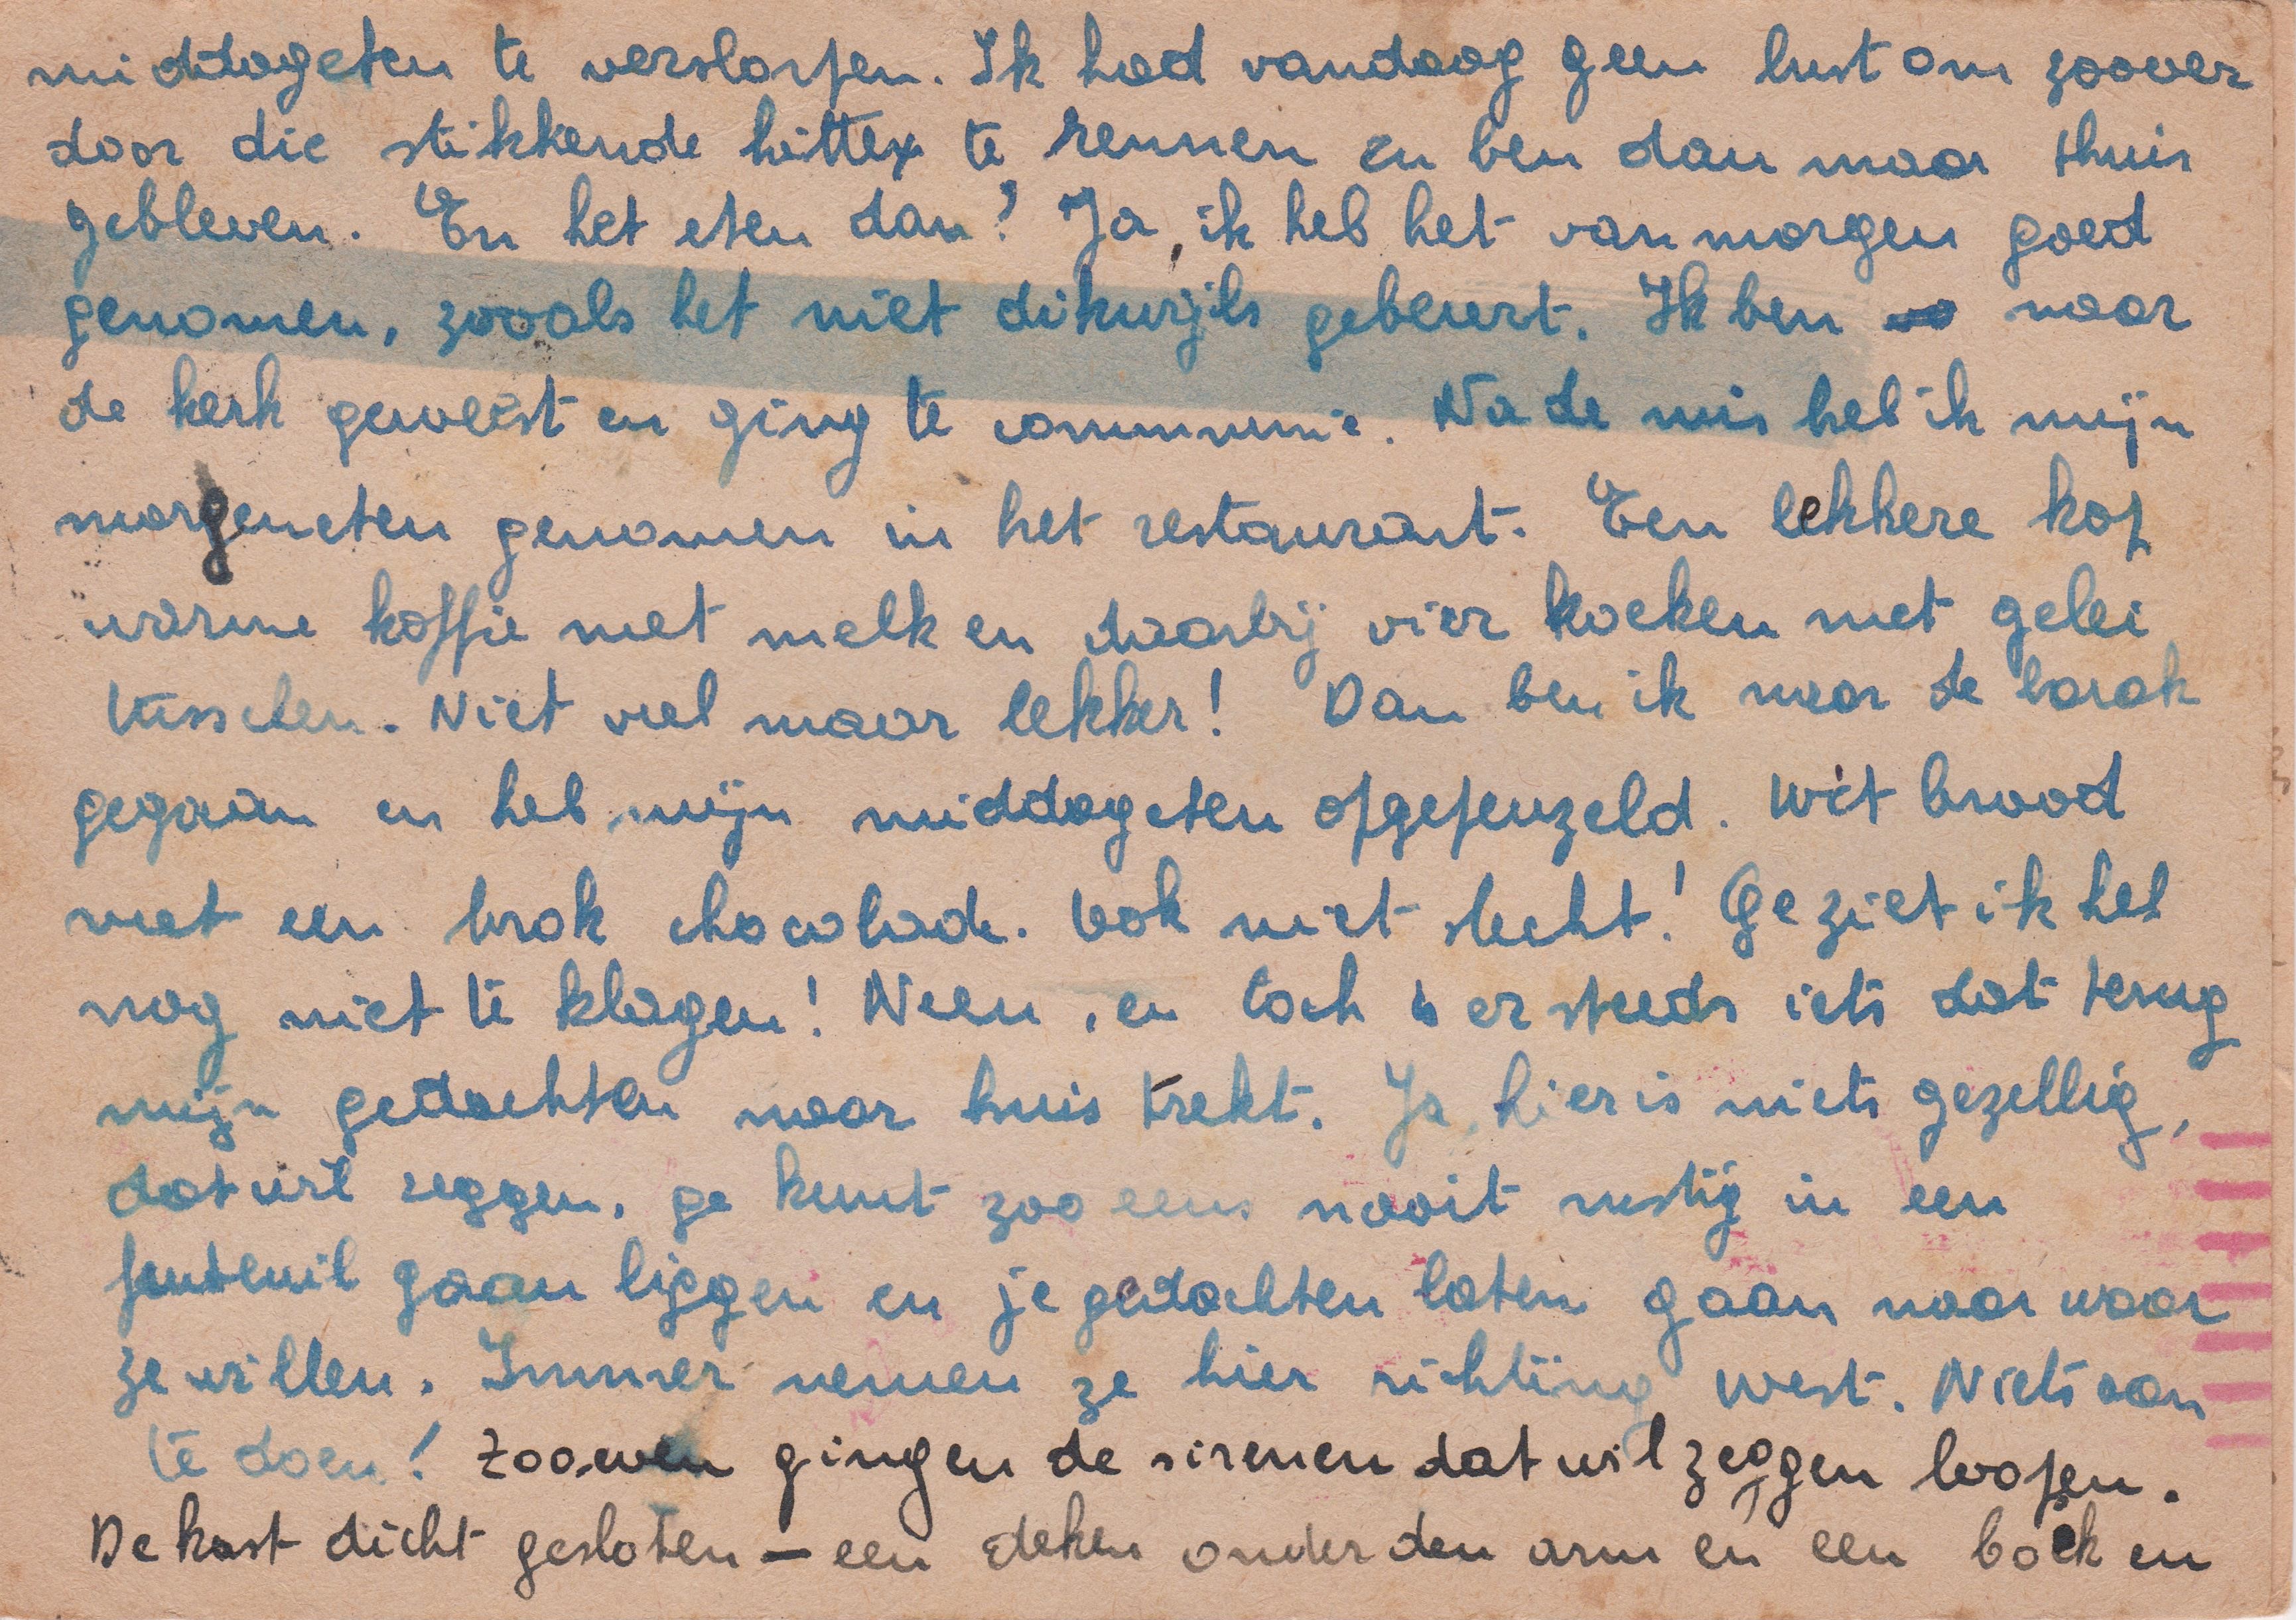 middageten te verslorpen. Ik had vandaag geen lust om zoover
door die stikkende hitte te rennen en ben dan maar thuis
gebleven. En het eten dan? Ja, ik heb het vanmorgen goed
genomen, zooals het niet dikwijls gebeurt. Ik ben naar
de kerk geweest en ging te communie. Na de mis heb ik mijn
morgeneten genomen in het restaurant. Een lekkere kop
warme koffie met melk en daarbij vier koeken met gelei
tusschen. Niet veel maar lekker! Dan ben ik naar de barak
gegaan en heb mijn middageten opgepeuzeld. Wit brood
met een brok chocolade. Ook niet slecht! Ge ziet ik heb
nog niet te klagen! Neen, en toch is er steeds iets dat terug
mijn gedachten naar huis trekt. Ja, hier is niets gezellig,
dat wil zeggen, ge kunt zoo eens nooit rustig in een
fauteuil gaan liggen en je gedachten laten gaan naar waar
ze willen. Immer nemen ze hier richting West. Niets aan
te doen! Zooeven gingen de sirenen dat wil zeggen loopen.
De kast dicht gesloten — een deken onder den arm en een boek en